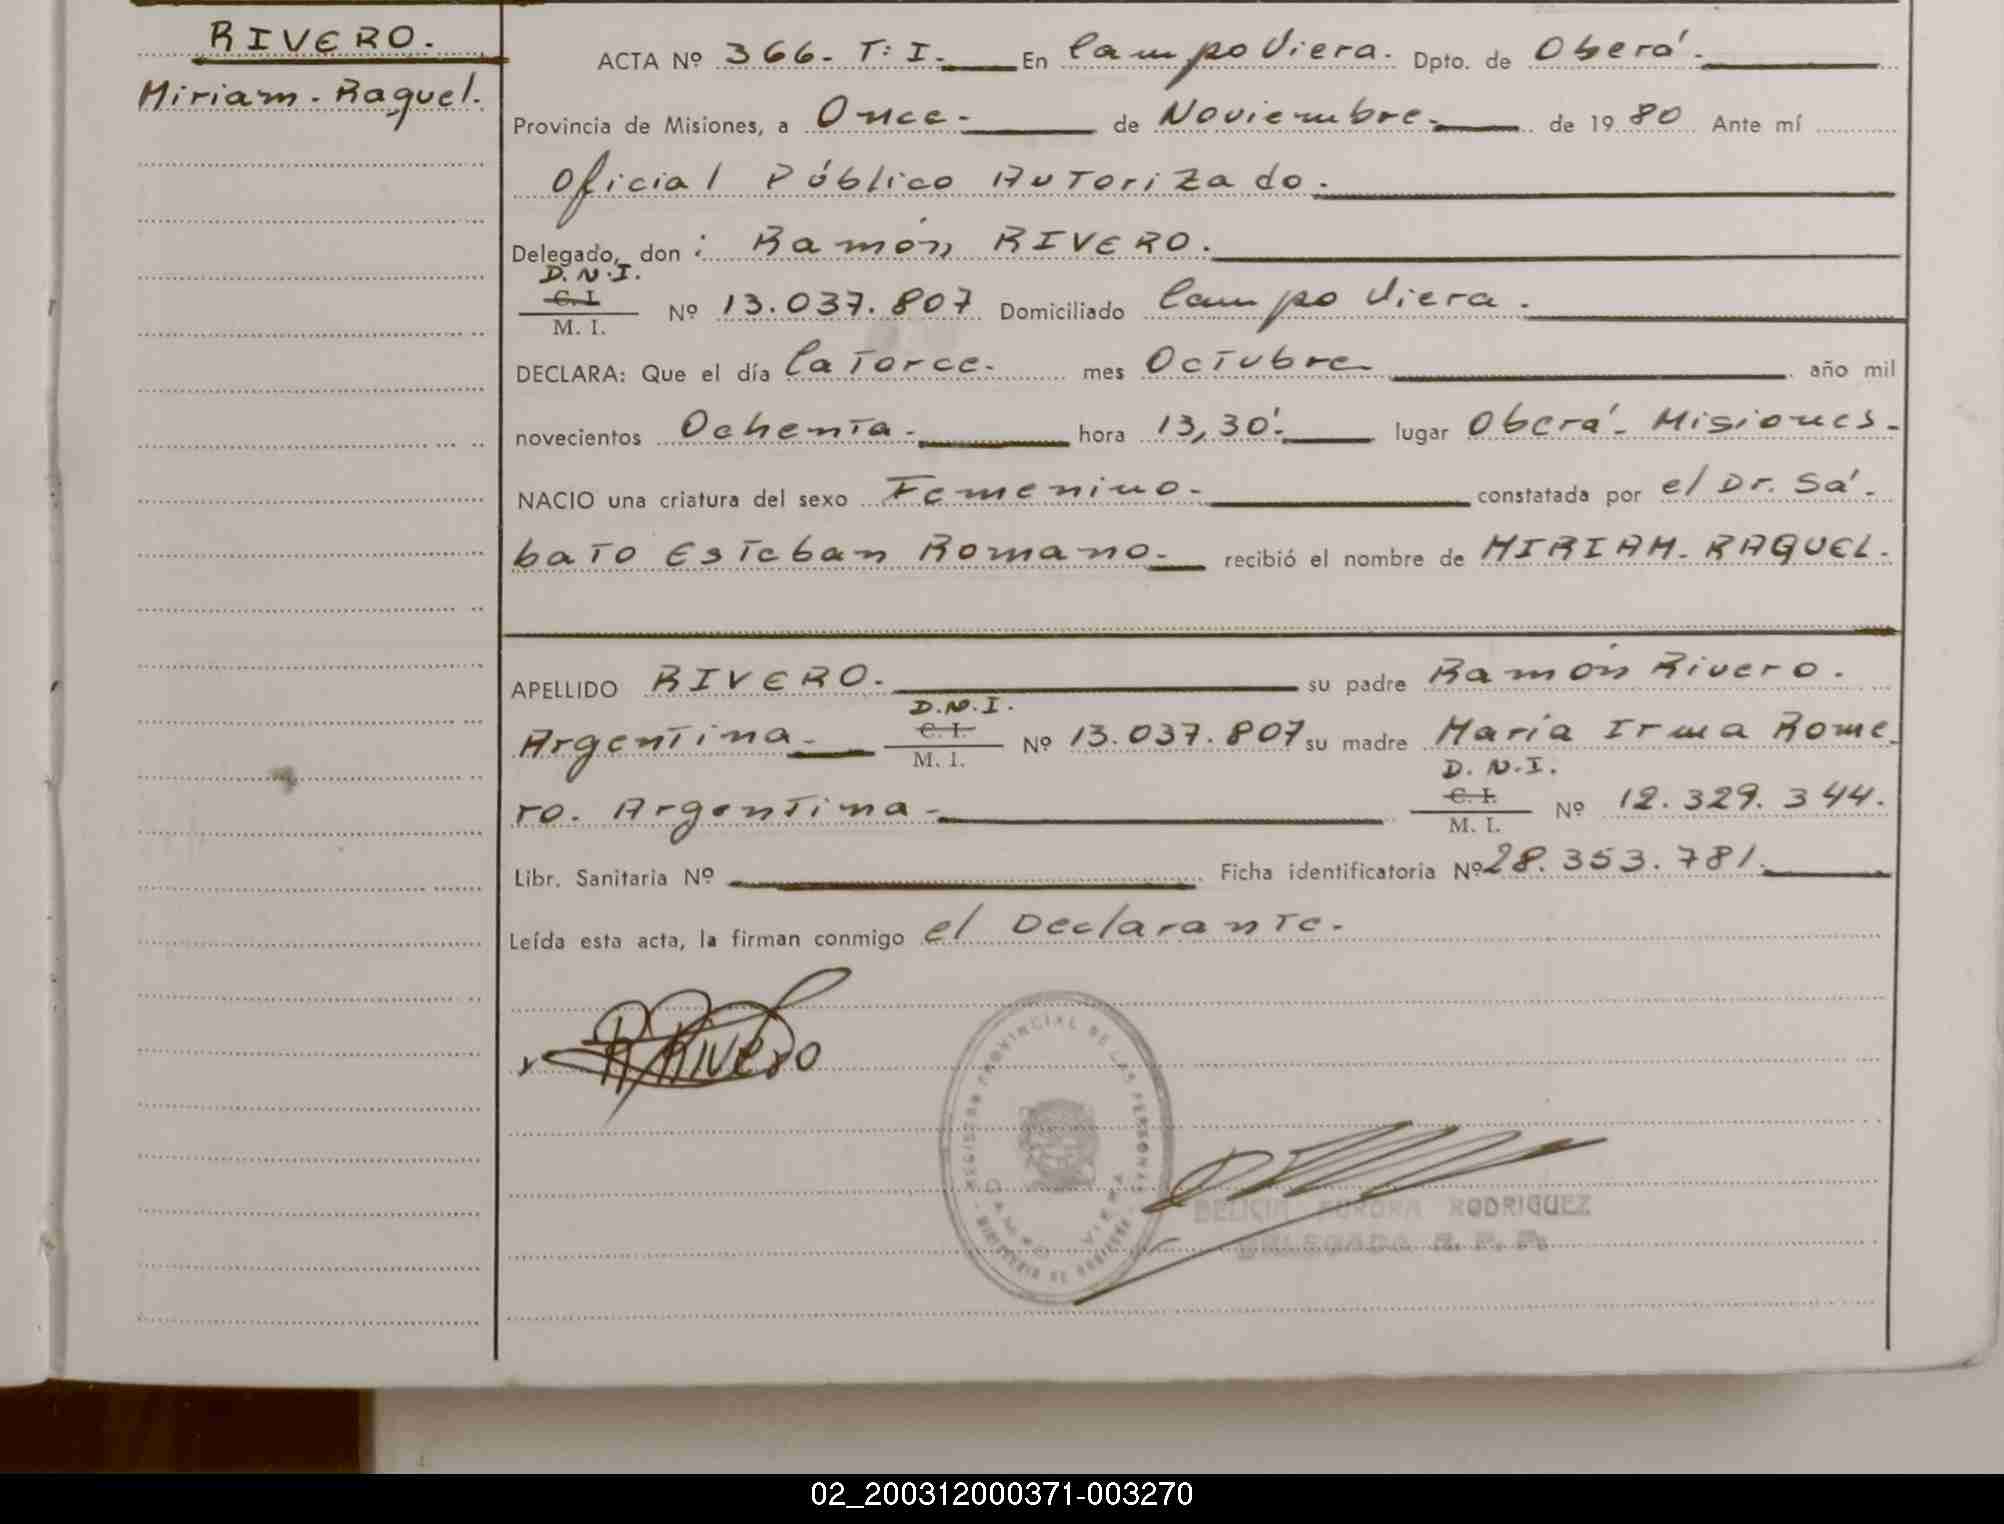 RIVERO.
Miriam. Raquel.
ACTA Nº 366. T: I. En Campo Viera. Dpto. de Oberá.
Provincia de Misiones, a Once. de Noviembre. de 1980 Ante mí
Oficial Público Autorizado.
Delegado, don: Ramón RIVERO.
D.N.I.
C. I.
M. I.
Nº 13.037.807 Domiciliado Campo Viera.
DECLARA: Que el día Catorce. mes Octubre año mil
novecientos Ochenta. hora 13,30'. lugar Oberá. Misiones.
NACIO una criatura del sexo Femenino. constatada por el Dr. Sá-
bato Esteban Romano. recibió el nombre de MIRIAM. RAQUEL.
APELLIDO RIVERO. su padre Ramón Rivero.
D.N.I.
Argentina. C. I. Nº 13.037.807 su madre María Irma Rome-
M. I.
D.N.I.
ro. Argentina. C. I. Nº 12.329.344.
M. I.
Libr. Sanitaria Nº Ficha identificatoria Nº 28.353.781.
Leída esta acta, la firman conmigo el Declarante.
R Rivero
REGISTRO PROVINCIAL DE LAS PERSONAS
CAMPO VIERA
MINISTERIO DE GOBIERNO
DELICIA AURORA RODRIGUEZ
DELEGADA R. P. P.
02_200312000371-003270